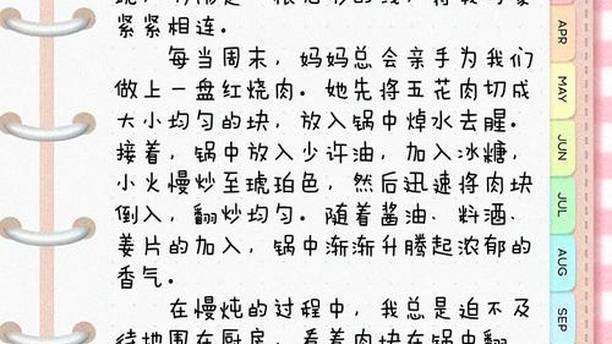 紧紧相连。
每当周末，妈妈总会亲手为我们
做上一盘红烧肉。她先将五花肉切成
大小均匀的块，放入锅中焯水去腥。
接着，锅中放入少许油，加入冰糖，
小火慢炒至琥珀色，然后迅速将肉块
倒入，翻炒均匀。随着酱油、料酒、
姜片的加入，锅中渐渐升腾起浓郁的
香气。
在慢炖的过程中，我总是迫不及
待地围在厨房，看着肉块在锅中翻
APR
MAY
JUN
JUL
AUG
SEP